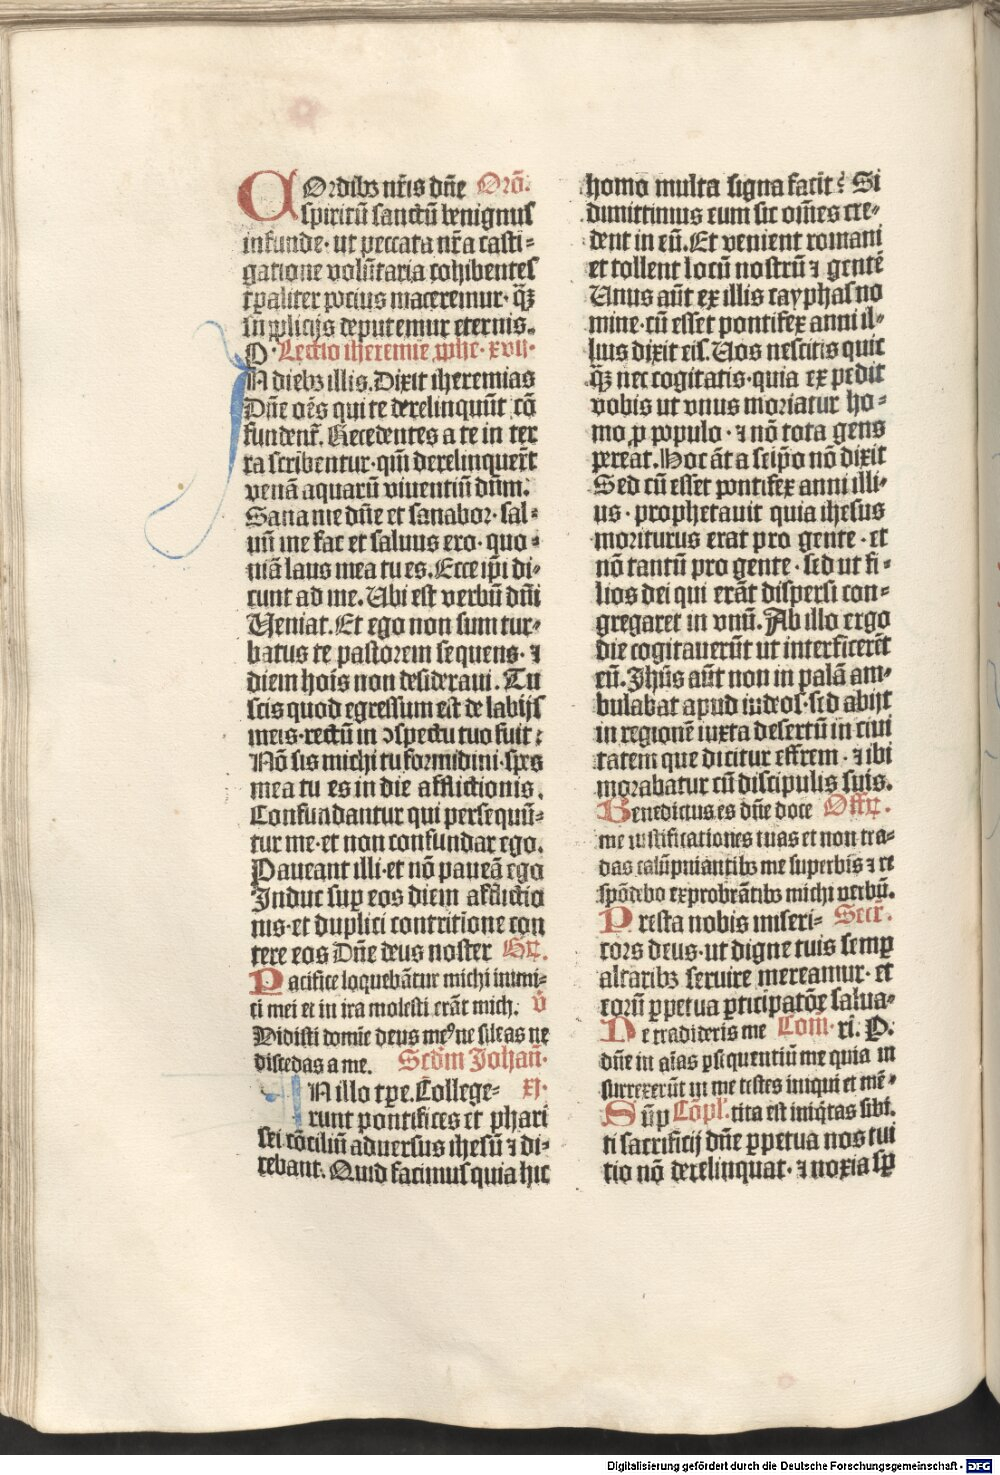 COrdibꝫ nr̄is dn̄e Orō.
spiritū sanctū benignus
infunde· ut peccata nr̄a casti⸗
gatione volūtaria cohibentes
tꝑaliter pocius maceremur· qᷓꝫ
supplicijs deputemur eternis.
P· Lectio iheremie ꝓphe· xvij·
IN diebꝫ illis. Dixit iheremias
Dn̄e oēs qui te derelinquūt cō
fundent᷑. Recedentes a te in ter
ra scribentur· qm̄ derelinquerūt
venā aquarū viventiū dn̄m.
Sana me dn̄e et sanabor· sal⸗
uū me fac et saluus ero· quo⸗
niā laus mea tu es. Ecce ip̄i di⸗
cunt ad me. Ubi est verbū dn̄i
Veniat. Et ego non sum tur⸗
batus te pastorem sequens· ⁊
diem hois non desideraui. Tu
scis quod egressum est de labijs
meis· rectū in ↄspectu tuo fuit:
Nō sis michi tu formidini· spes
mea tu es in die afflictionis.
Confundantur qui persequū⸗
tur me· et non confundar ego.
Paueant illi· et nō paueā ego
Induc suꝑ eos diem afflictio
nis· et duplici contritione con
tere eos Dn̄e deus noster Gr̄.
Pacifice loquebātur michi inimi⸗
ci mei et in ira molesti erāt mich. v̄
Vidisti domīe deus meꝰ ne sileas ne
discedas a me. Scd̄m Johan̄·
IN illo tꝑe. College⸗ xj·
runt pontifices et phari
sei cōciliū adversus ihesū ⁊ di⸗
cebant. Quid facimus quia hic
homo multa signa facit: Si
dimittimus eum sic om̄es cre⸗
dent in eū. Et venient romani
et tollent locū nostrū ⁊ gentē
Unus aūt ex illis cayphas no
mine· cū esset pontifex anni il⸗
lius dixit eis. Uos nescitis quic
qᷓꝫ nec cogitatis· quia expedit
vobis ut vnus moriatur ho⸗
mo ꝓ populo· ⁊ nō tota gens
pereat. Hoc āt a seip̄o nō dixit
Sed cū esset pontifex anni illi⸗
us· prophetauit quia ihesus
moriturus erat pro gente· et
nō tantū pro gente· sed ut fi⸗
lios dei qui erāt dispersi con⸗
gregaret in vnū. Ab illo ergo
die cogitauerūt ut interficerēt
eū. Jhūs aūt non in palā am⸗
bulabat apud iudeos· sed abijt
in regionē iuxta desertū in ciui
tatem que dicitur effrem· ⁊ ibi
morabatur cū discipulis suis.
Benedictus es dn̄e doce Offr̄.
me iustificationes tuas et non tra⸗
das calūpniantibꝫ me superbis ⁊ re
spōdebo exprobrātibꝫ michi verbū.
Presta nobis miseri⸗ Secr̄.
cors deus· ut digne tuis semꝑ
altaribꝫ seruire mereamur· et
eorū ꝑpetua ꝑticipatōe salua⸗
Ne tradideris me Com̄· ri. P.
dn̄e in aīas ꝑsequentiū me quia in
surrexerūt in me testes iniqui et mē⸗
Sūꝑ Cōpl̄. tita est iniqͥtas sibi.
ti sacrificij dn̄e ꝑpetua nos tui
tio nō derelinquat· ⁊ noxia sꝑ
Digitalisierung gefördert durch die Deutsche Forschungsgemeinschaft · DFG